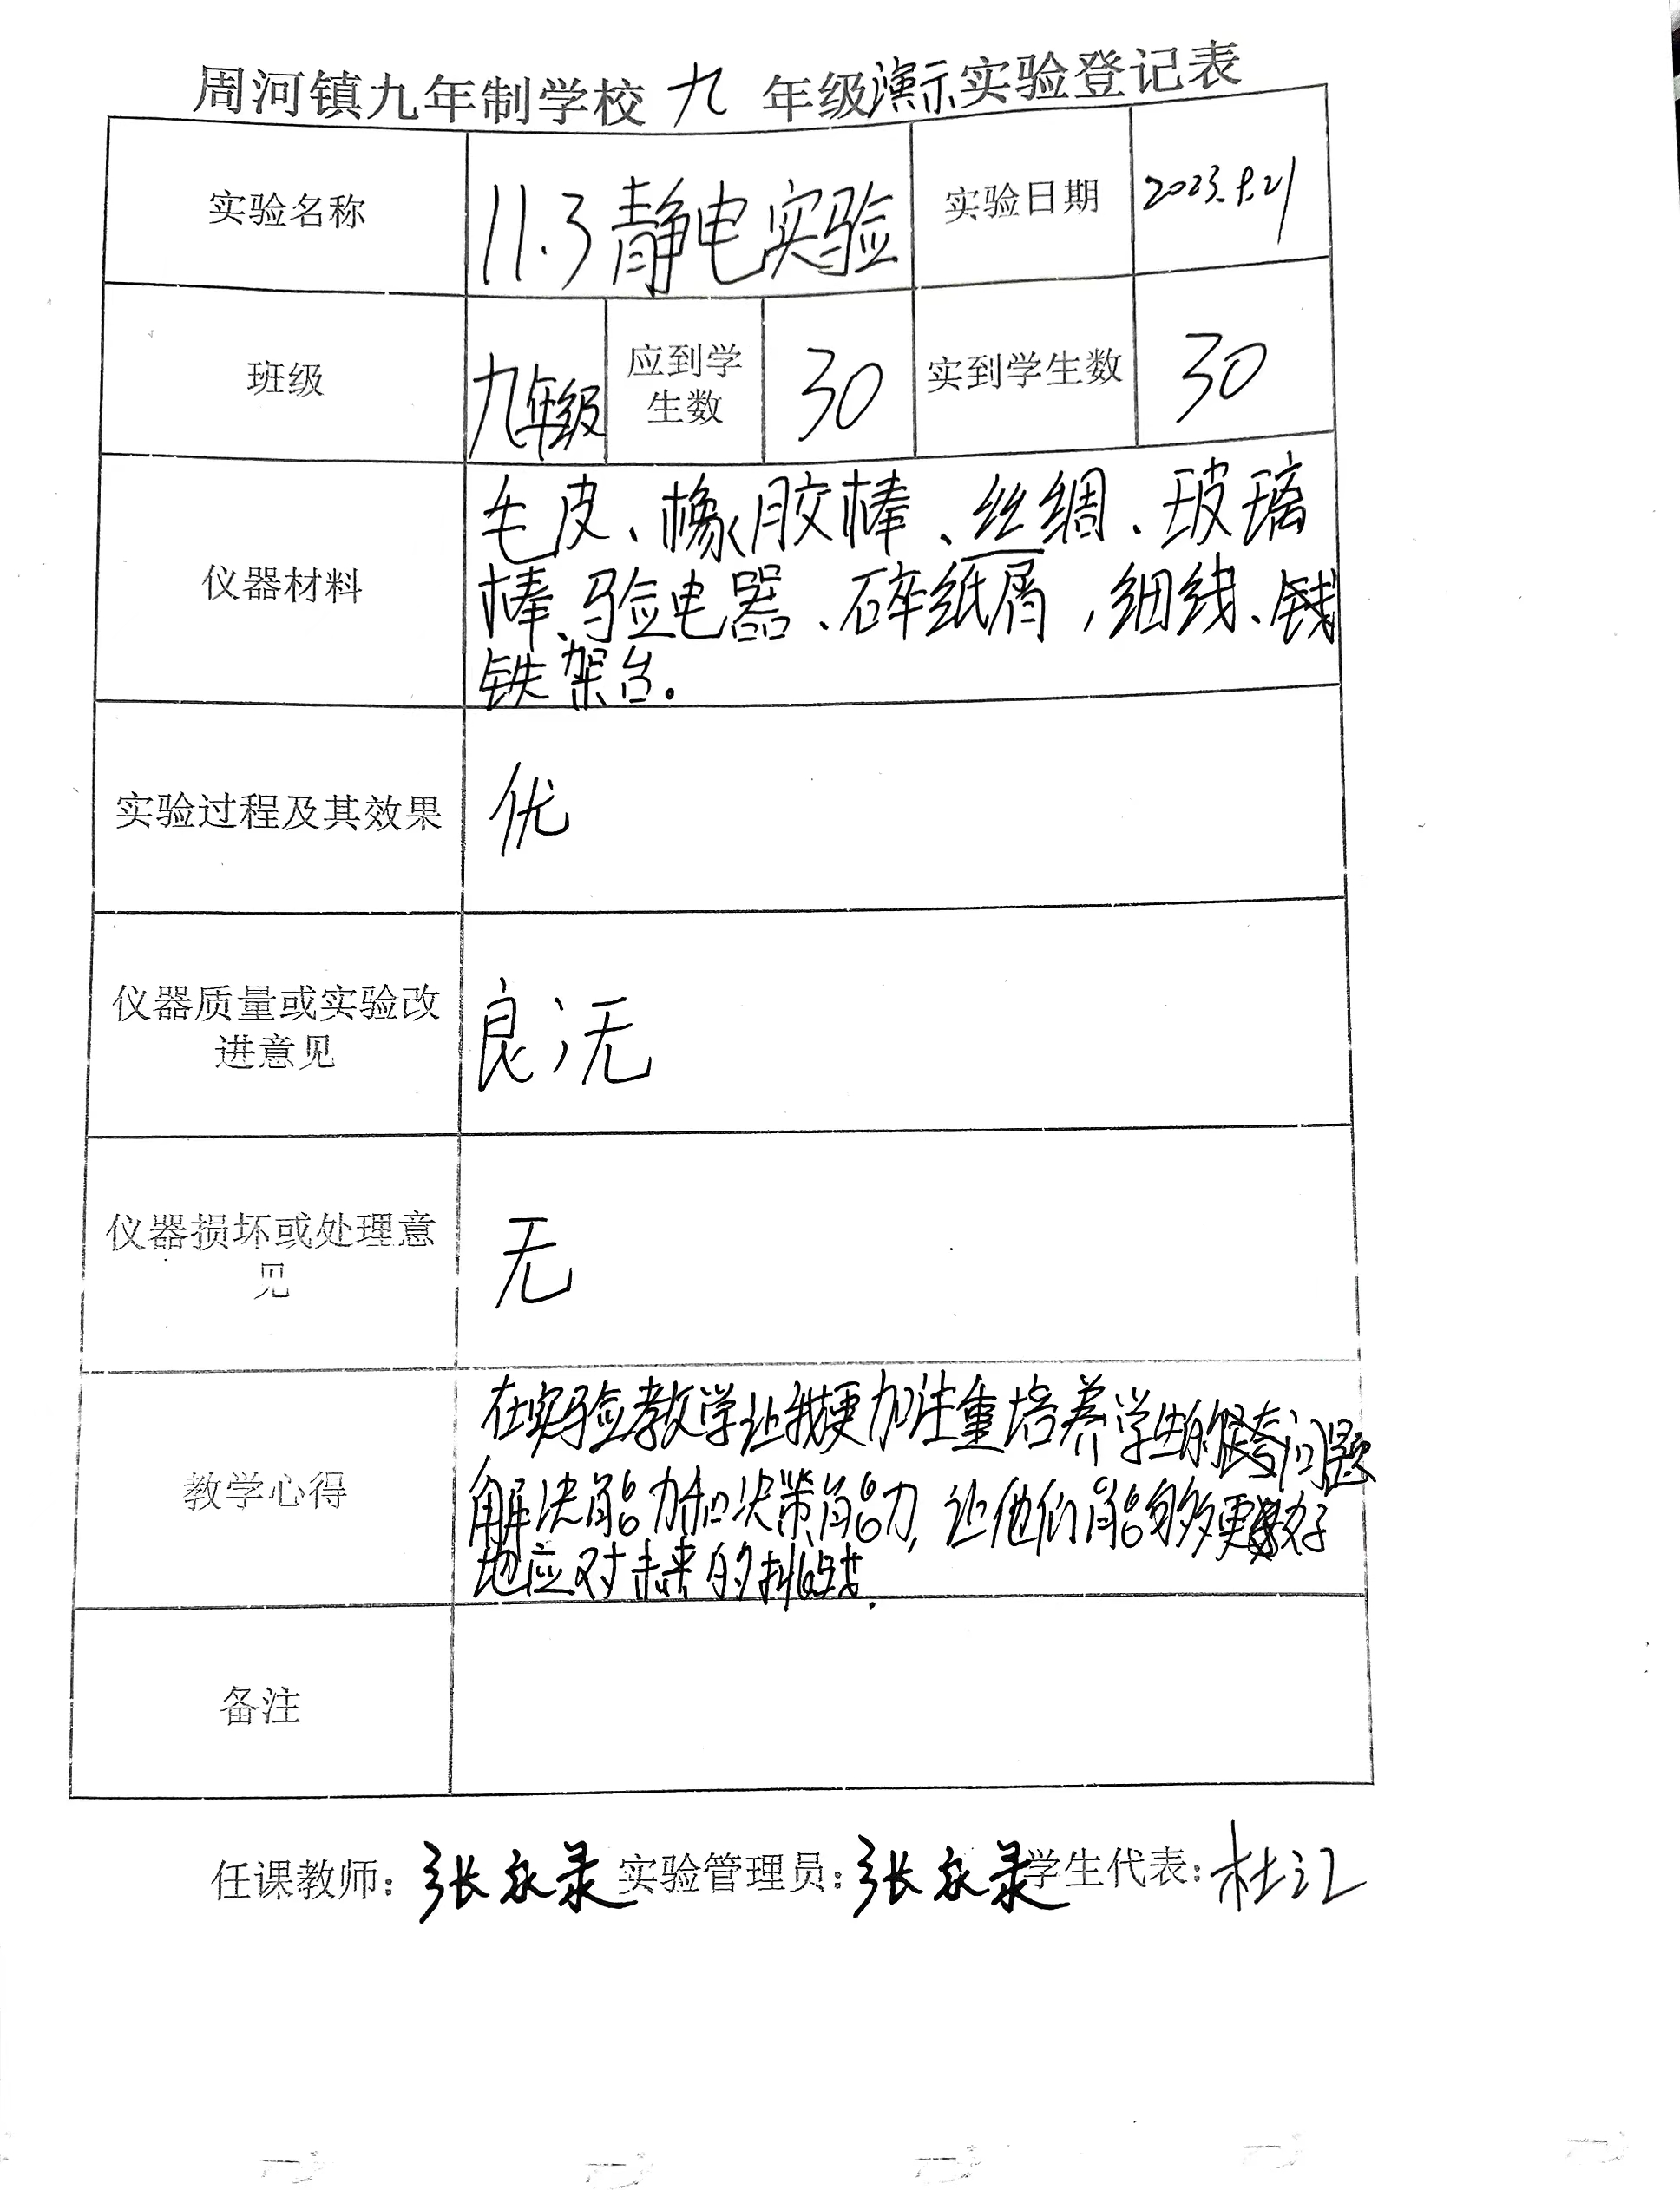 周河镇九年制学校 九 年级演示实验登记表
实验名称 11.3 静电实验 实验日期 2023.9.21
班级 九年级 应到学生数 30 实到学生数 30
仪器材料
毛皮、橡胶棒、丝绸、玻璃
棒、验电器、碎纸屑,细线、
铁架台.
实验过程及其效果 优
仪器质量或实验改
进意见
良;无
仪器损坏或处理意
见
无
教学心得
在实验教学让我更加注重培养学生的问题
解决能力和决策能力,让他们能够更好
地应对未来的挑战.
备注
任课教师:张永录 实验管理员:张永录 学生代表:杜江